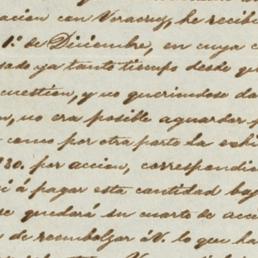 acion con Veracruz, he recibi
1.º de Diciembre, en cuya c
sado ya tanto tiempo desde qu
cuestion, y no queriendose da
n, no era posible aguardar p
como por otra parte la exhi
30. por accion, correspondi
i á pagar esta cantidad baj
se quedará su cuarto de acc
de reembolzar á V. lo que ha